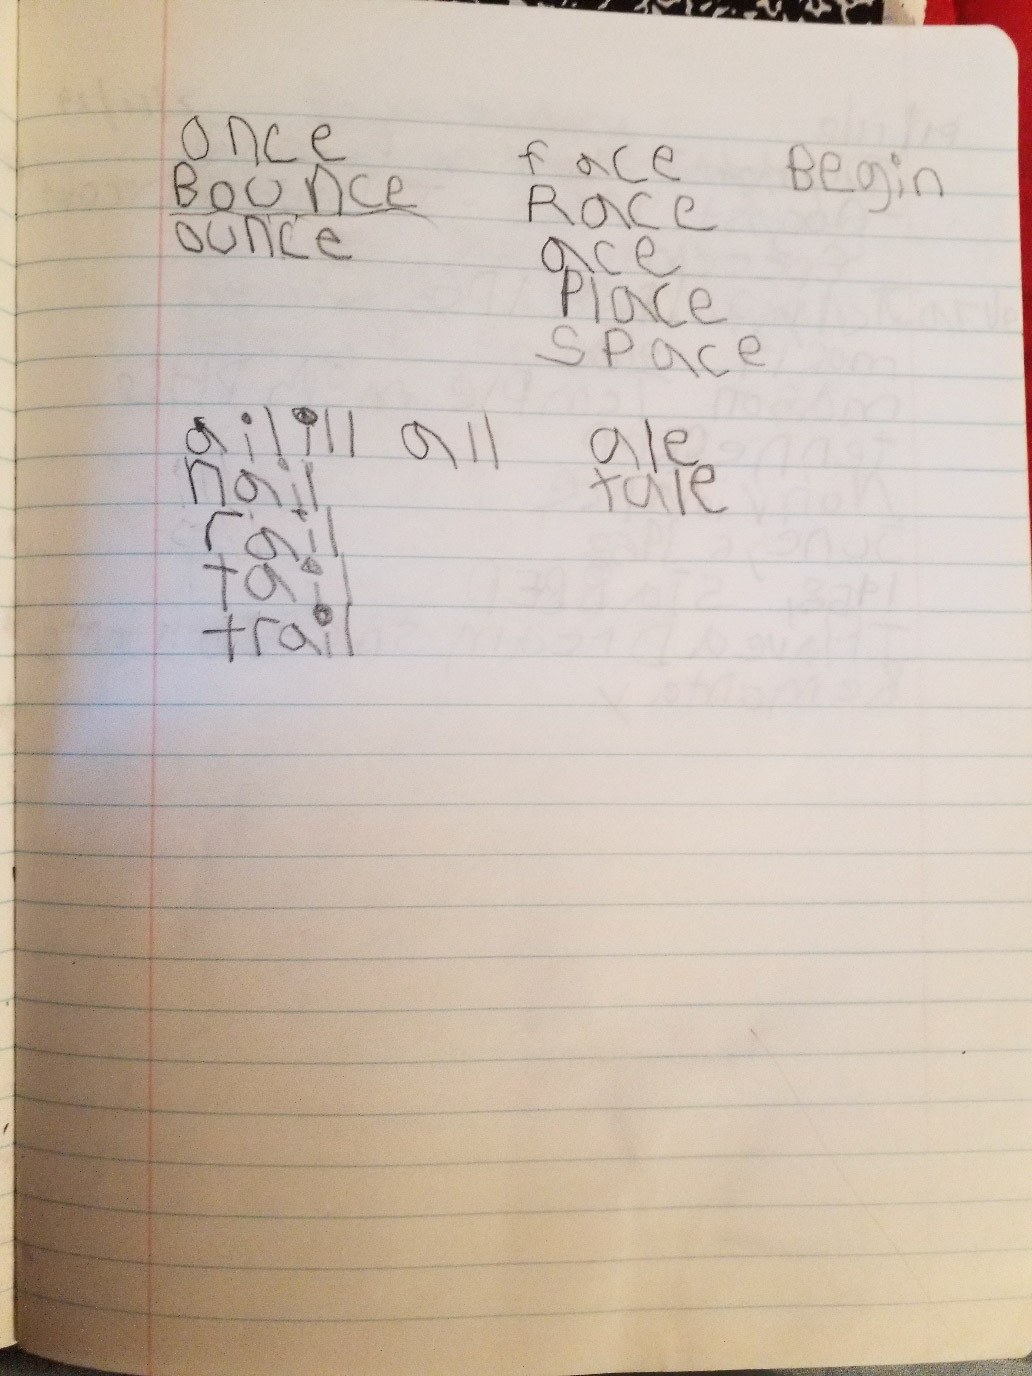 once
Bounce
ounce
face
Race
ace
Place
space
Begin
ail ill all
nail
rail
tail
trail
ale
tale